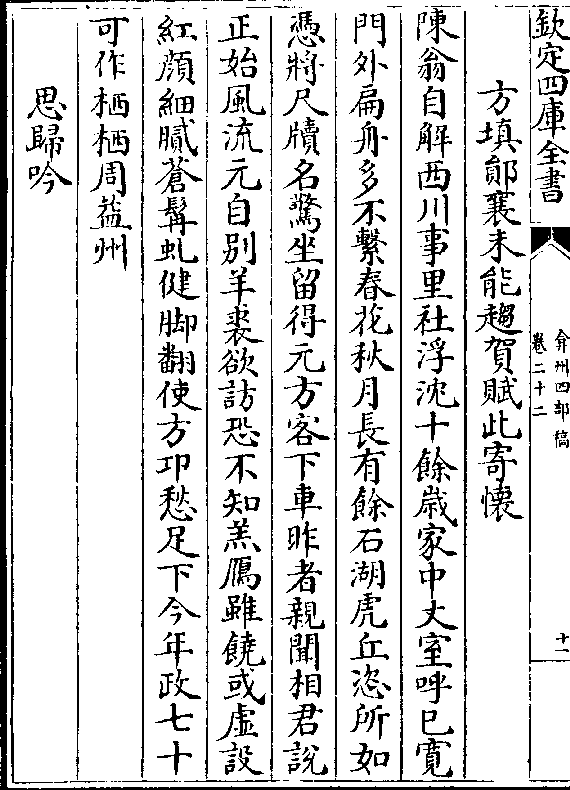 欽定四庫全書
弇州四部稿
卷二十二
十一
方填鄖襄未能趨賀賦此寄懷
陳翁自解西川事里社浮沈十餘歲家中丈室呼已寛
門外扁舟多不繫春花秋月長有餘石湖虎丘恣所如
憑將尺牘名驚坐留得元方客下車昨者親聞相君說
正始風流元自别羊裘欲訪恐不知羔鴈雖饒或虚設
紅顔細膩蒼髯虬健脚翻使方卭愁足下今年政七十
可作栖栖周益州
思歸吟